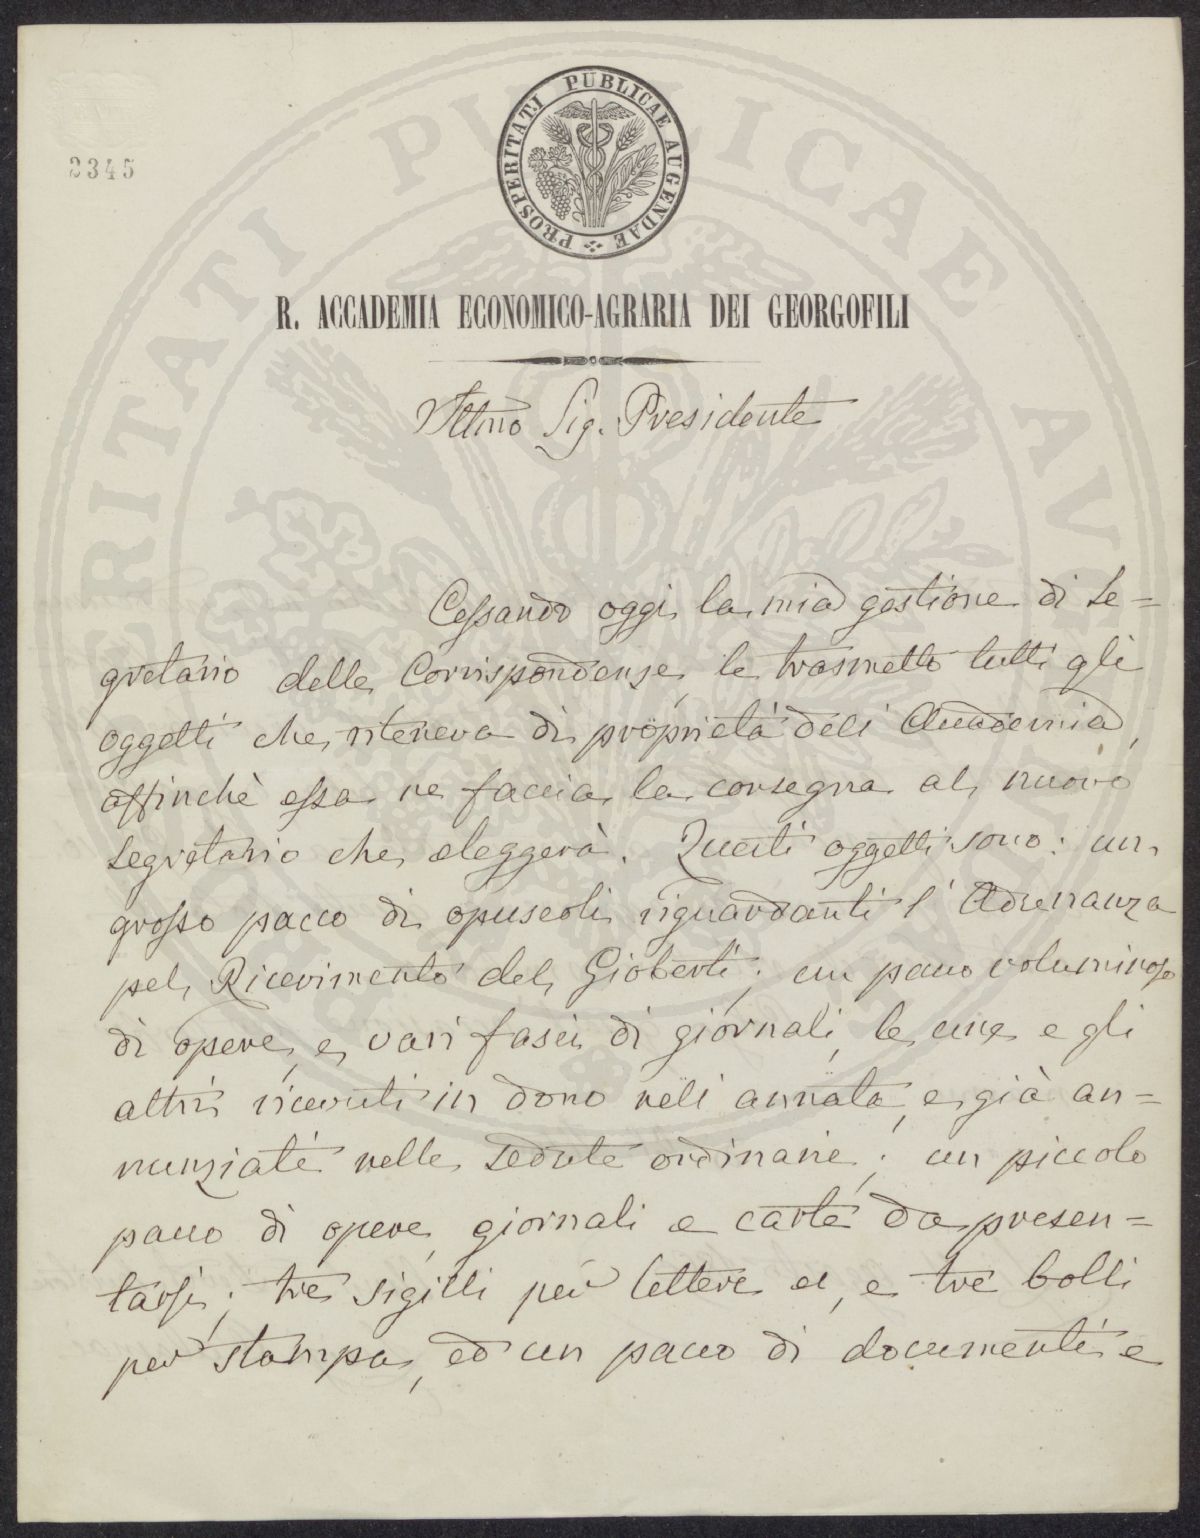 2345
PROSPERITATI PUBLICAE AUGENDAE
R. ACCADEMIA ECONOMICO-AGRARIA DEI GEORGOFILI
Illmo Sig. Presidente
Cessando oggi la mia gestione di Se=
gretario delle Corrispondenze, le trasmetto tutti gli
oggetti che riteneva di proprietà dell' Accademia,
affinchè essa ne faccia la consegna al nuovo
Segretario che eleggerà. Questi oggetti sono: un
grosso pacco di opuscoli riguardanti l' Adunanza
pel Ricevimento del Gioberti; un pacco voluminoso
di opere, e varj fasci di giornali, le une e gli
altri ricevuti in dono nell' annata, e già an=
nunziati nelle sedute ordinarie; un piccolo
pacco di opere, giornali e carte da presen=
tarsi; tre sigilli per lettere e, e tre bolli
per stampa, ed un pacco di documenti e